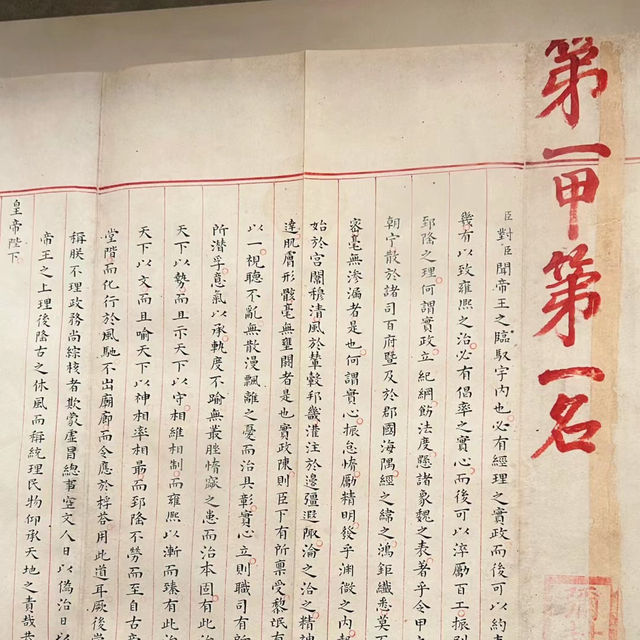 第一甲第一名
臣對臣聞帝王之臨馭宇內也必有經理之實政而後可以約
幾有以致雍熙之治必有倡率之實心而後可以淬勵百工振
郅隆之理何謂實政立紀綱飭法度懸諸象魏之表著乎令甲
朝宁散於諸司百府暨及於郡國海隅經之緯之鴻鉅纖悉莫
密毫無滲漏者是也何謂實心振怠惰勵精明發乎淵微之內
始於宮闈穆清風於輦轂邦畿灌注於邊疆遐陬淪之洽之精神
達肌膚形骸毫無壅閼者是也實政陳則臣下有所禀受黎氓有
以一視聽不亂無散漫飄離之憂而治具彰實心立則職司有
所潛孚意氣以承軌度不踰無叢脞惰窳之患而治本固有此
天下以勢而且示天下以守相維相制而雍熙以漸而臻有此
天下以文而且喻天下以神相率相勗而郅隆不勞而至自古
堂階而化行於風馳不出廟廊而令應於桴答用此道耳厥後
稱朕不理政務尚綜核者欺蒙虛冒總事空文人日以偽治日
帝王之上理後隆古之休風而稱統理民物仰承天地之責哉
皇帝陛下